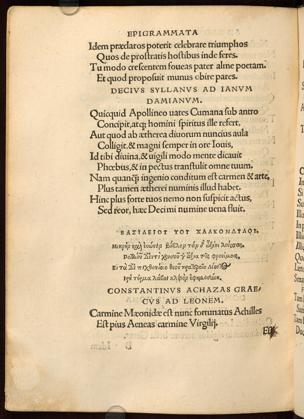 EPIGRAMMATA
Idem præclaros poterit celebrare triumphos
Quos de prostratis hostibus inde feres.
Tu modo crescentem foueas pater alme poetam
Et quod proposuit munus obire pares.
DECIVS SYLLANVS AD IANVM
DAMIANVM.
Quicquid Apollineo uates Cumana sub antro
Concipit, atq; homini spiritus ille refert.
Aut quod ab ætherea diuorum nuncius aula
Colligit, & magni semper in ore Iouis,
Id tibi diuina, & uigili modo mente dicauit
Phœbus, & in pectus transtulit omne tuum.
Nam quancq; ingenio conditum est carmen & arte,
Plus tamen æthere numinis illud habet.
Hinc plus forte tuos nemo non suspicit actus,
Sed reor, hæc Decimi numine uena fluit.
ΒΑΣΙΛΕΙΟΥ ΤΟΥ ΧΑΛΚΟΝΔΥΛΟΥ.
CONSTANTINVS ACHAZAS GRAE/
CVS AD LEONEM.
Carmine Mæonidæ est nunc fortunatus Achilles
Est pius Aeneas carmine Virgilij.